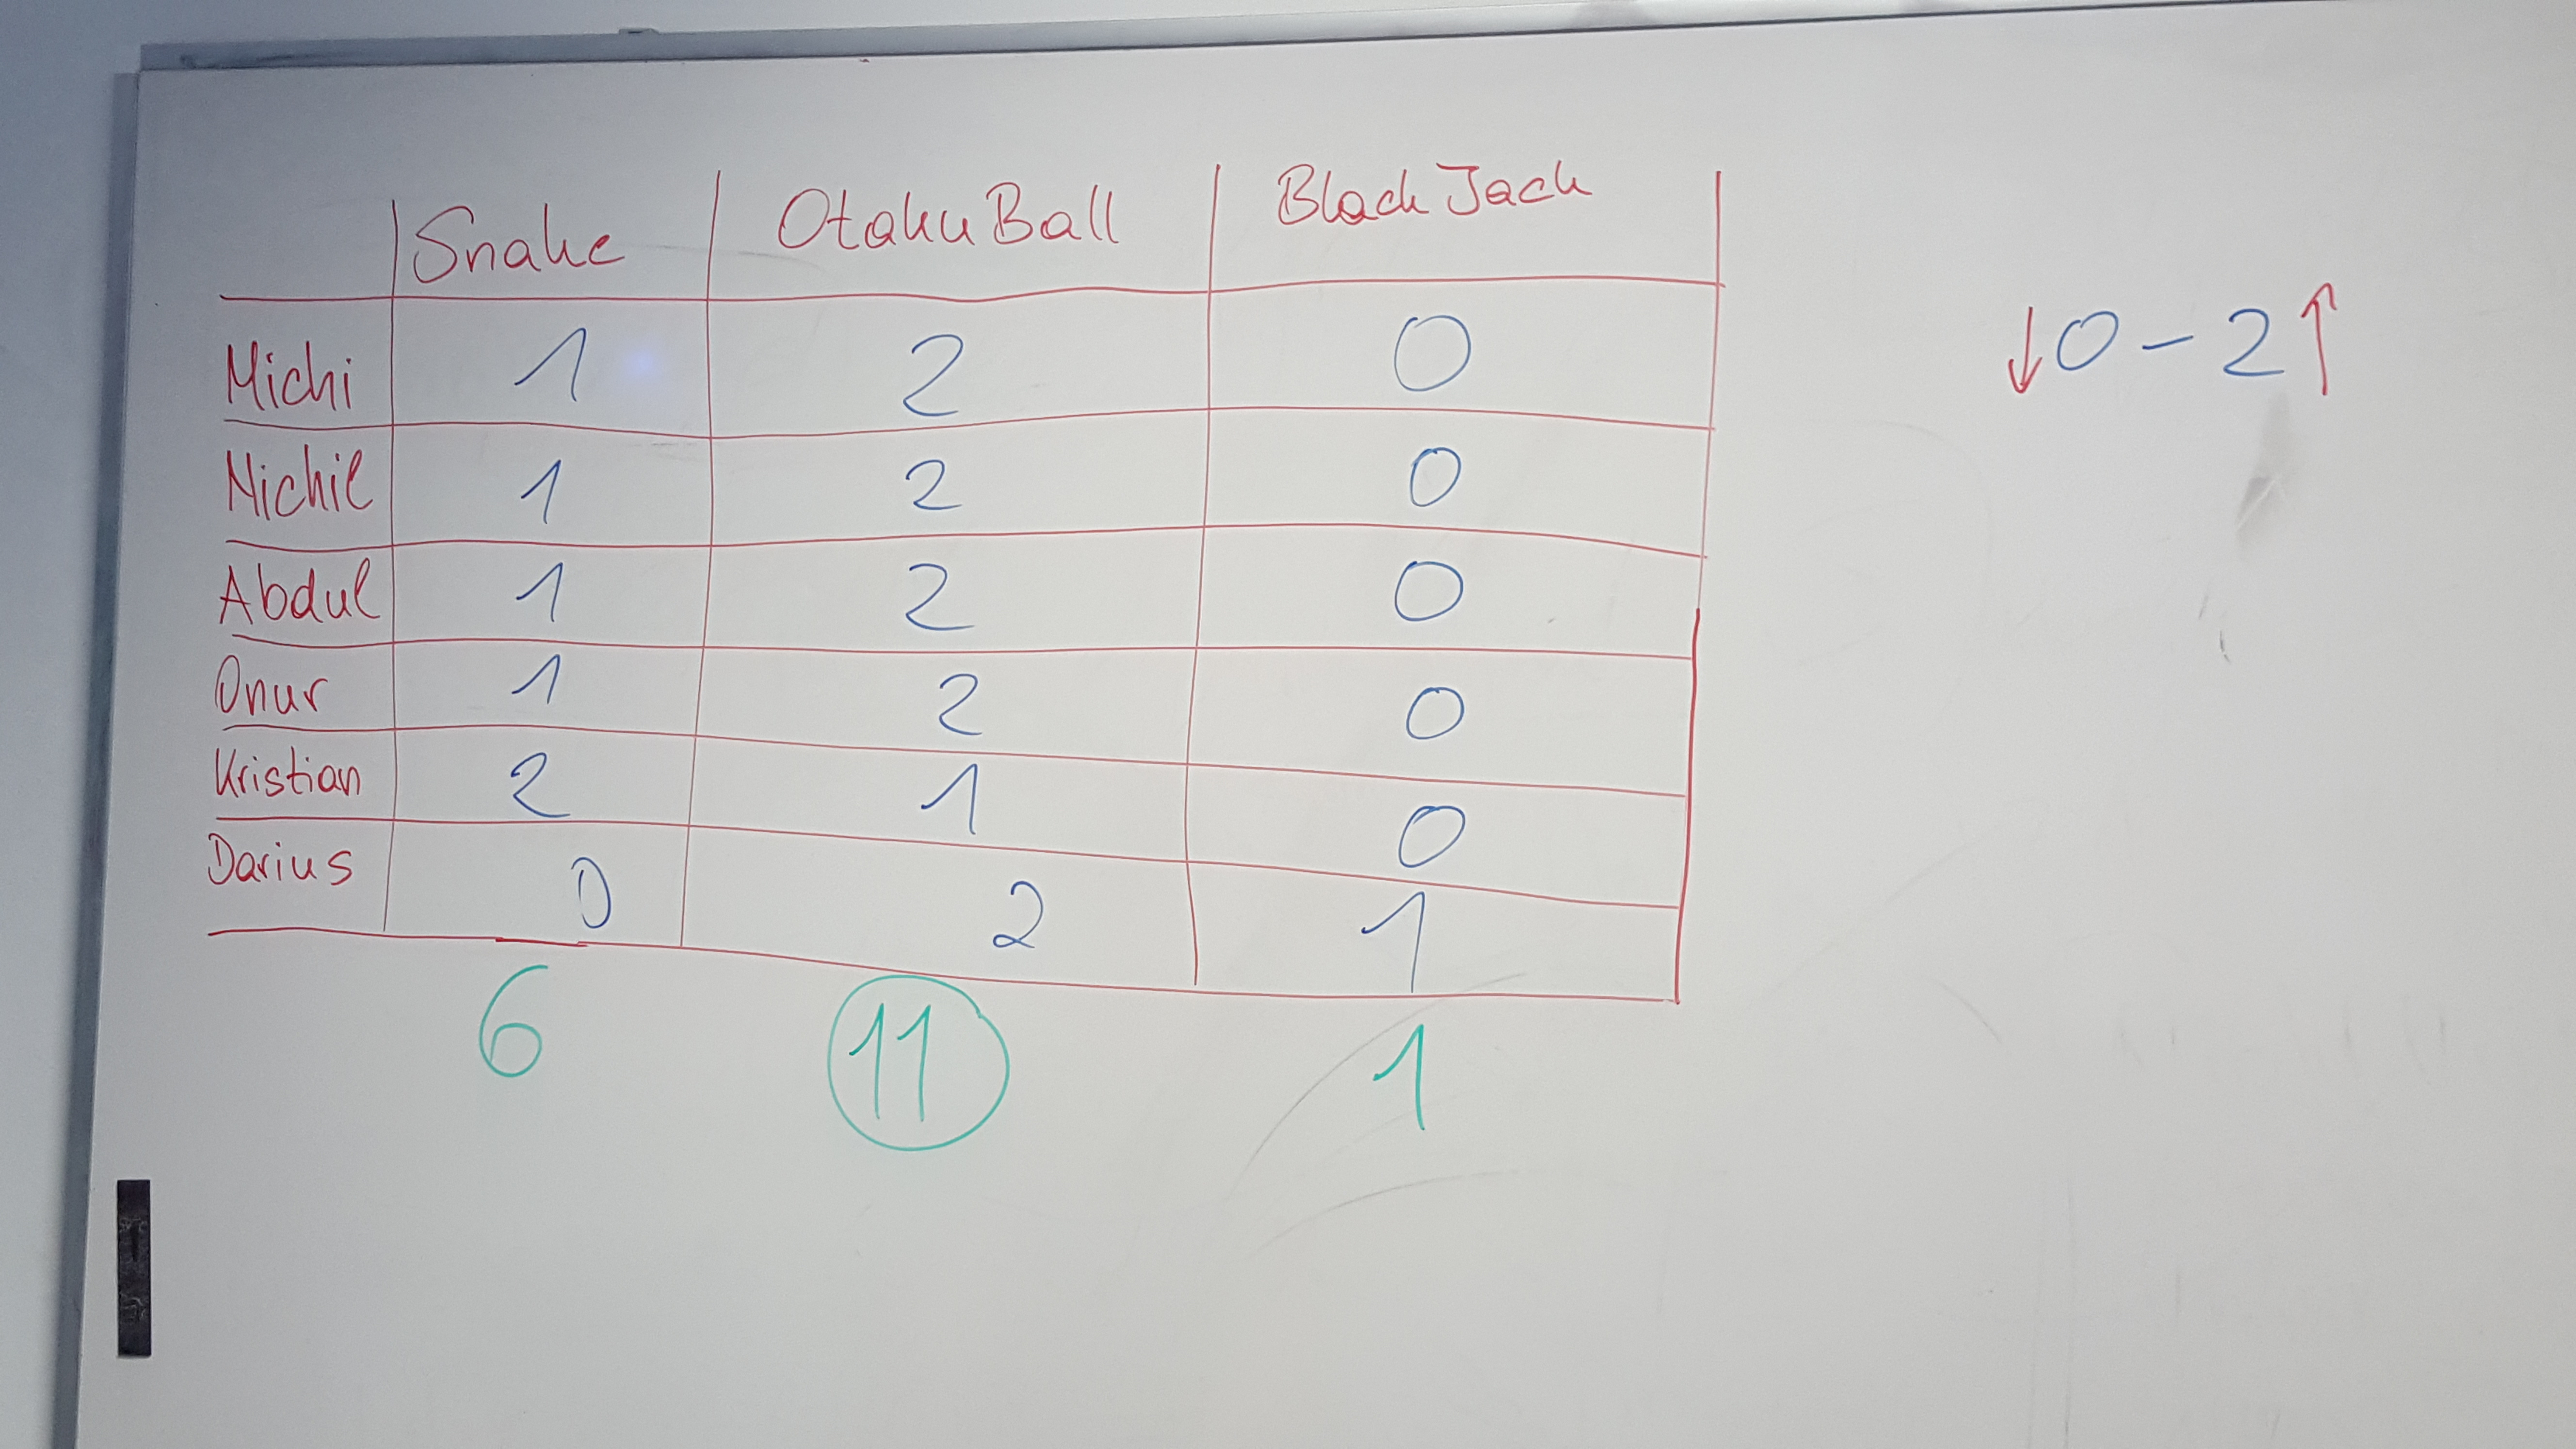 Snake OtakuBall Black Jack
Michi 1 2 0
↓0-2↑
Michil 1 2 0
Abdul 1 2 0
Onur 1 2 0
Kristian 2 1 0
Darius 0 2 1
6 11 1